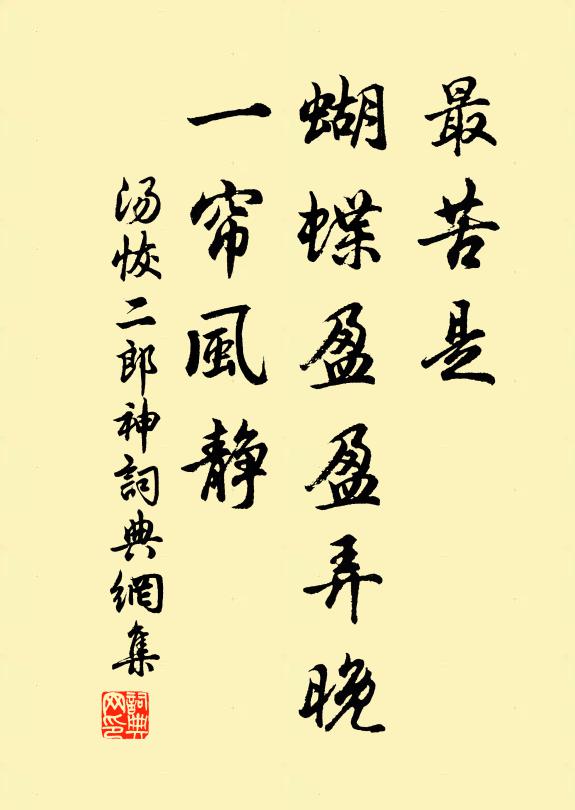 最苦是
蝴蝶盈盈弄晚
一帘風静
汤恢二郎神詞典網集
詞典網印